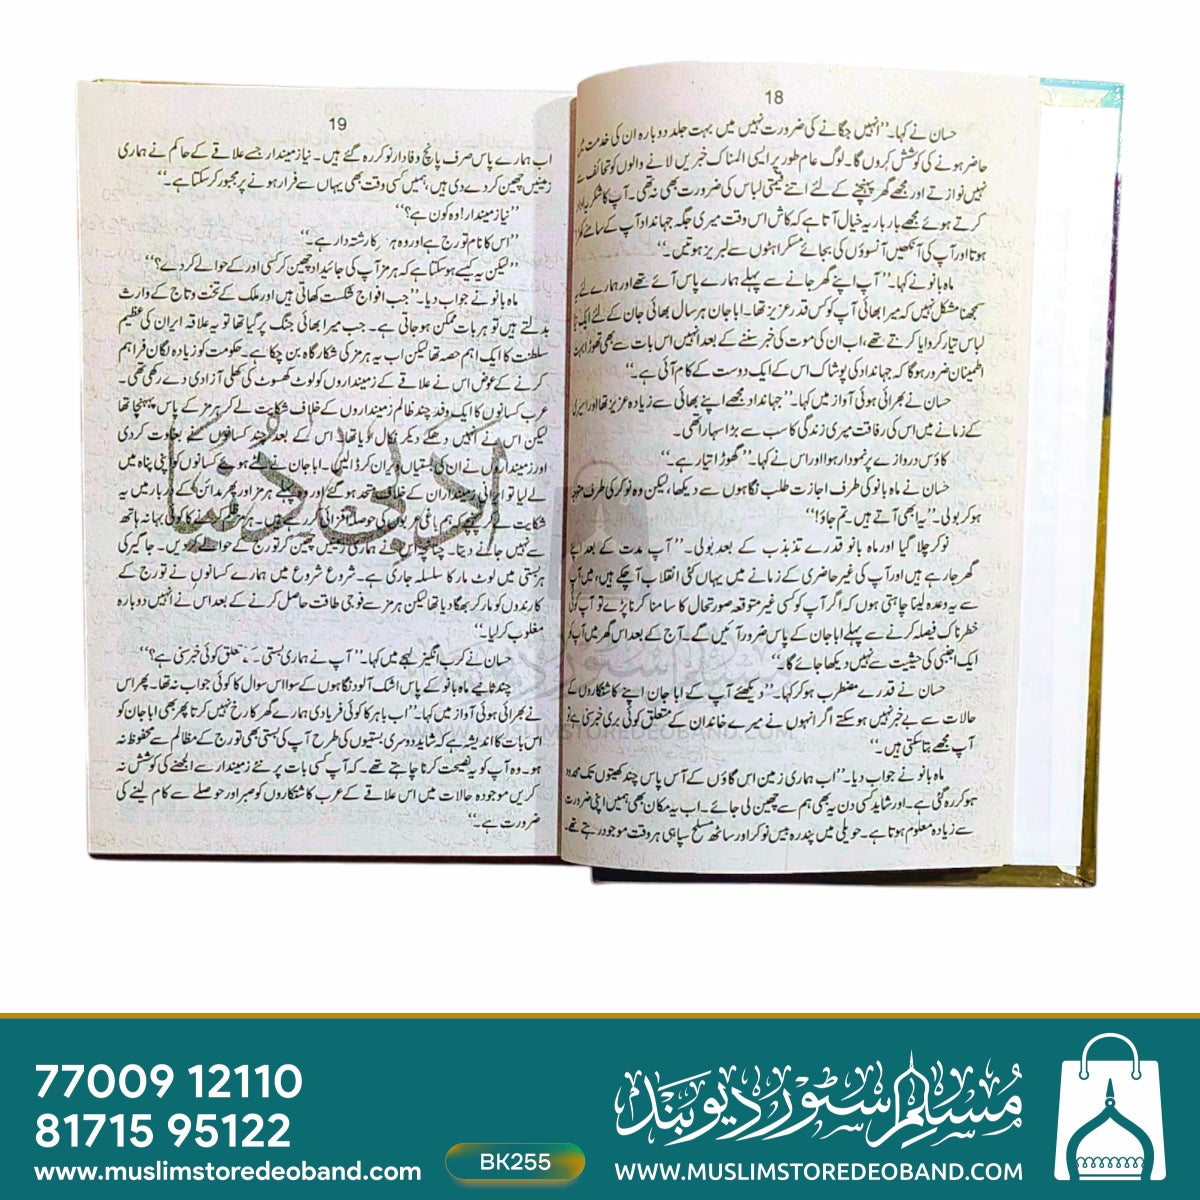 18
حسان نے کہا۔ ’’انہیں جگانے کی ضرورت نہیں میں بہت جلد دوبارہ ان کی خدمت میں
حاضر ہونے کی کوشش کروں گا۔ لوگ عام طور پر ایسی المناک خبریں لانے والوں کو تحائف سے
نہیں نوازتے اور مجھے گھر پہنچنے کے لئے اتنے قیمتی لباس کی ضرورت بھی نہ تھی۔ آپ کا شکریہ ادا
کرتے ہوئے مجھے بار بار یہ خیال آتا ہے کہ کاش اس وقت میری جگہ جہانداد آپ کے سامنے کھڑا
ہوتا اور آپ کی آنکھیں آنسوؤں کی بجائے مسکراہٹوں سے لبریز ہوتیں۔‘‘
ماہ بانو نے کہا۔ ’’آپ اپنے گھر جانے سے پہلے ہمارے پاس آئے تھے اور ہمارے لئے یہ
سمجھنا مشکل نہیں کہ میرا بھائی آپ کو کس قدر عزیز تھا۔ ابا جان ہر سال بھائی جان کے لئے ایک نیا
لباس تیار کروایا کرتے تھے، اب ان کی موت کی خبر سننے کے بعد انہیں اس بات سے بھی تھوڑا بہت
اطمینان ضرور ہوگا کہ جہانداد کی پوشاک اس کے ایک دوست کے کام آئی ہے۔‘‘
حسان نے بھرائی ہوئی آواز میں کہا۔ ’’جہانداد مجھے اپنے بھائی سے زیادہ عزیز تھا اور اسیری
کے زمانے میں اس کی رفاقت میری زندگی کا سب سے بڑا سہارا تھی۔
کاؤس دروازے پر نمودار ہوا اور اس نے کہا۔ ’’گھوڑا تیار ہے۔‘‘
حسان نے ماہ بانو کی طرف اجازت طلب نگاہوں سے دیکھا، لیکن وہ نوکر کی طرف متوجہ
ہو کر بولی۔ ’’یہ ابھی آتے ہیں۔ تم جاؤ!‘‘
نوکر چلا گیا اور ماہ بانو قدرے تذبذب کے بعد بولی۔ ’’آپ مدت کے بعد اپنے
گھر جا رہے ہیں اور آپ کی غیر حاضری کے زمانے میں یہاں کئی انقلاب آچکے ہیں، میں آپ
سے یہ وعدہ لینا چاہتی ہوں کہ اگر آپ کو کسی غیر متوقعہ صورتحال کا سامنا کرنا پڑے تو آپ کوئی
خطرناک فیصلہ کرنے سے پہلے ابا جان کے پاس ضرور آئیں گے۔ آج کے بعد اس گھر میں آپ کو
ایک اجنبی کی حیثیت سے نہیں دیکھا جائے گا۔‘‘
حسان نے قدرے مضطرب ہو کر کہا۔ ’’دیکھئے آپ کے ابا جان اپنے کاشتکاروں کے
حالات سے بے خبر نہیں ہو سکتے اگر انہوں نے میرے خاندان کے متعلق کوئی بری خبر سنی ہے تو
آپ مجھے بتا سکتی ہیں۔‘‘
ماہ بانو نے جواب دیا۔ ’’اب ہماری زمین اس گاؤں کے آس پاس چند کھیتوں تک محدود
ہو کر رہ گئی ہے۔ اور شاید کسی دن یہ بھی ہم سے چھین لی جائے۔ اب یہ مکان بھی ہمیں اپنی ضرورت
سے زیادہ معلوم ہوتا ہے۔ حویلی میں پندرہ بیس نوکر اور ساٹھ مسلح سپاہی ہر وقت موجود رہتے تھے
19
اب ہمارے پاس صرف پانچ وفادار نوکر رہ گئے ہیں۔ نیا زمیندار جسے علاقے کے حاکم نے ہماری
زمینیں چھین کر دے دی ہیں، ہمیں کسی وقت بھی یہاں سے فرار ہونے پر مجبور کر سکتا ہے۔‘‘
’’نیا زمیندار! وہ کون ہے؟‘‘
’’اس کا نام تورج ہے اور وہ ہرمز کا رشتہ دار ہے۔‘‘
’’لیکن یہ کیسے ہو سکتا ہے کہ ہرمز آپ کی جائیداد چھین کر کسی اور کے حوالے کر دے؟‘‘
ماہ بانو نے جواب دیا۔ ’’جب افواج شکست کھاتی ہیں اور ملک کے تخت و تاج کے وارث
بدلتے ہیں تو ہر بات ممکن ہو جاتی ہے۔ جب میرا بھائی جنگ پر گیا تھا تو یہ علاقہ ایران کی عظیم
سلطنت کا ایک اہم حصہ تھا لیکن اب یہ ہرمز کی شکار گاہ بن چکا ہے۔ حکومت کو زیادہ لگان فراہم
کرنے کے عوض اس نے علاقے کے زمینداروں کو لوٹ کھسوٹ کی کھلی آزادی دے رکھی تھی۔
عرب کسانوں کا ایک وفد چند ظالم زمینداروں کے خلاف شکایت لے کر ہرمز کے پاس پہنچا تھا
لیکن اس نے انہیں دھکے دیکر نکال دیا تھا۔ اس کے بعد چند کسانوں نے بغاوت کر دی
اور زمینداروں نے ان کی بستیاں ویران کر ڈالیں۔ ابا جان نے ہوئے کسانوں کو اپنی پناہ میں
لے لیا تو ایرانی زمینداران کے خلاف متحد ہو گئے اور وہ پہلے ہرمز اور پھر مدائن کے دربار میں یہ
شکایت لے کر پہنچے کہ ہم باغی عربوں کی حوصلہ افزائی کر رہے ہیں۔ ہرمز ظلم کا کوئی بہانہ ہاتھ
سے نہیں جانے دیتا۔ چنانچہ اس نے ہماری زمینیں چھین کر تورج کے حوالے کر دیں۔ جاگیر کی
ہر بستی میں لوٹ مار کا سلسلہ جاری ہے۔ شروع شروع میں ہمارے کسانوں نے تورج کے
کارندوں کو مار کر بھگا دیا تھا لیکن ہرمز سے فوجی طاقت حاصل کرنے کے بعد اس نے انہیں دوبارہ
مغلوب کر لیا۔‘‘
حسان نے کرب انگیز لہجے میں کہا۔ ’’آپ نے ہماری بستی کے متعلق کوئی خبر سنی ہے؟‘‘
چند ثانیے ماہ بانو کے پاس اشک آلود نگاہوں کے سوا اس سوال کا کوئی جواب نہ تھا۔ پھر اس
نے بھرائی ہوئی آواز میں کہا۔ ’’اب باہر کا کوئی فریادی ہمارے گھر کا رخ نہیں کرتا پھر بھی ابا جان کو
اس بات کا اندیشہ ہے کہ شاید دوسری بستیوں کی طرح آپ کی بستی بھی تورج کے مظالم سے محفوظ نہ
ہو۔ وہ آپ کو یہ نصیحت کرنا چاہتے تھے۔ کہ آپ کسی بات پر نئے زمیندار سے الجھنے کی کوشش نہ
کریں موجودہ حالات میں اس علاقے کے عرب کاشتکاروں کو صبر اور حوصلے سے کام لینے کی
ضرورت ہے۔‘‘
ادبی دنیا
مسلم سٹور دیوبند
WWW.MUSLIMSTOREDEOBAND.COM
77009 12110
81715 95122
www.muslimstoredeoband.com
BK255
مسلم سٹور دیوبند
WWW.MUSLIMSTOREDEOBAND.COM